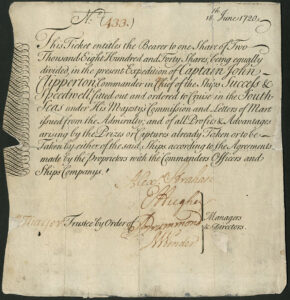 No. (433.)
18th June 1720.
This Ticket entitles the Bearer to one Share of Two
Thousand Eight Hundred and Forty Shares, being equally
divided, in the present Expedition of Captain John
Clipperton Commander in Chief of the Ships Success &
Speedwell fitted out and ordered to Cruise in the South
Seas under His Majestys Commission and Letters of Mart
issued from the Admiralty, and of all Profits & Advantages
arising by the Prizes or Captures already Taken or to be
Taken by either of the said Ships according to the Agreements
made by the Proprietors with the Commanders Officers and
Ships Companys
Hughes
Trustee by Order of
Drummond
Managers
& Directors